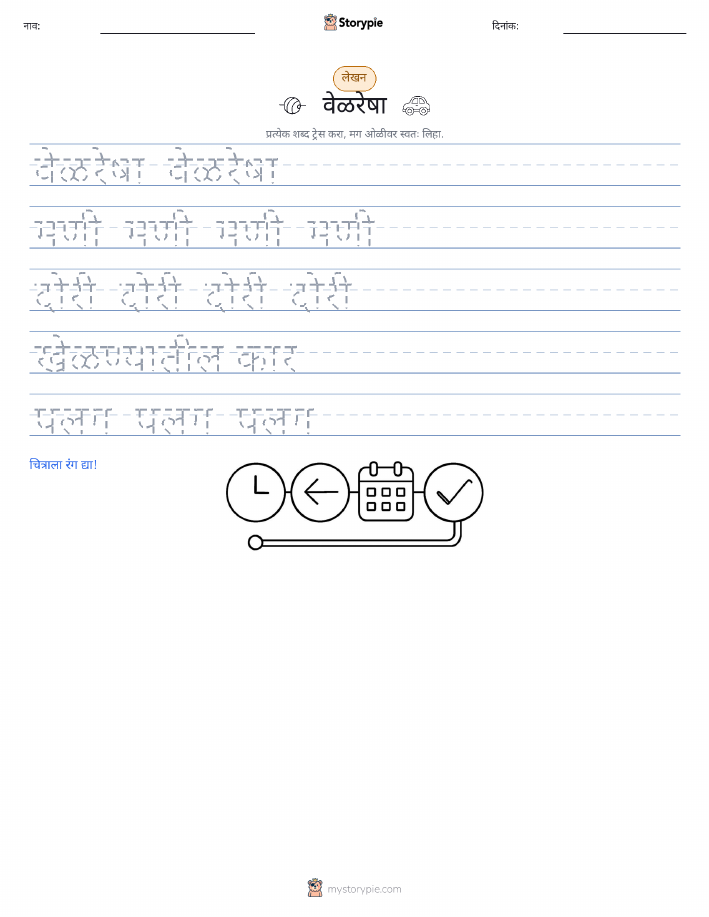 नाव:
Storypie
दिनांक:
लेखन
वेळरेषा
प्रत्येक शब्द ट्रेस करा, मग ओळीवर स्वतः लिहा.
वेळरेषा वेळरेषा
मणी मणी मणी मणी
दोरी दोरी दोरी दोरी
खेळण्यातील कार
पलंग पलंग पलंग
चित्राला रंग द्या!
mystorypie.com